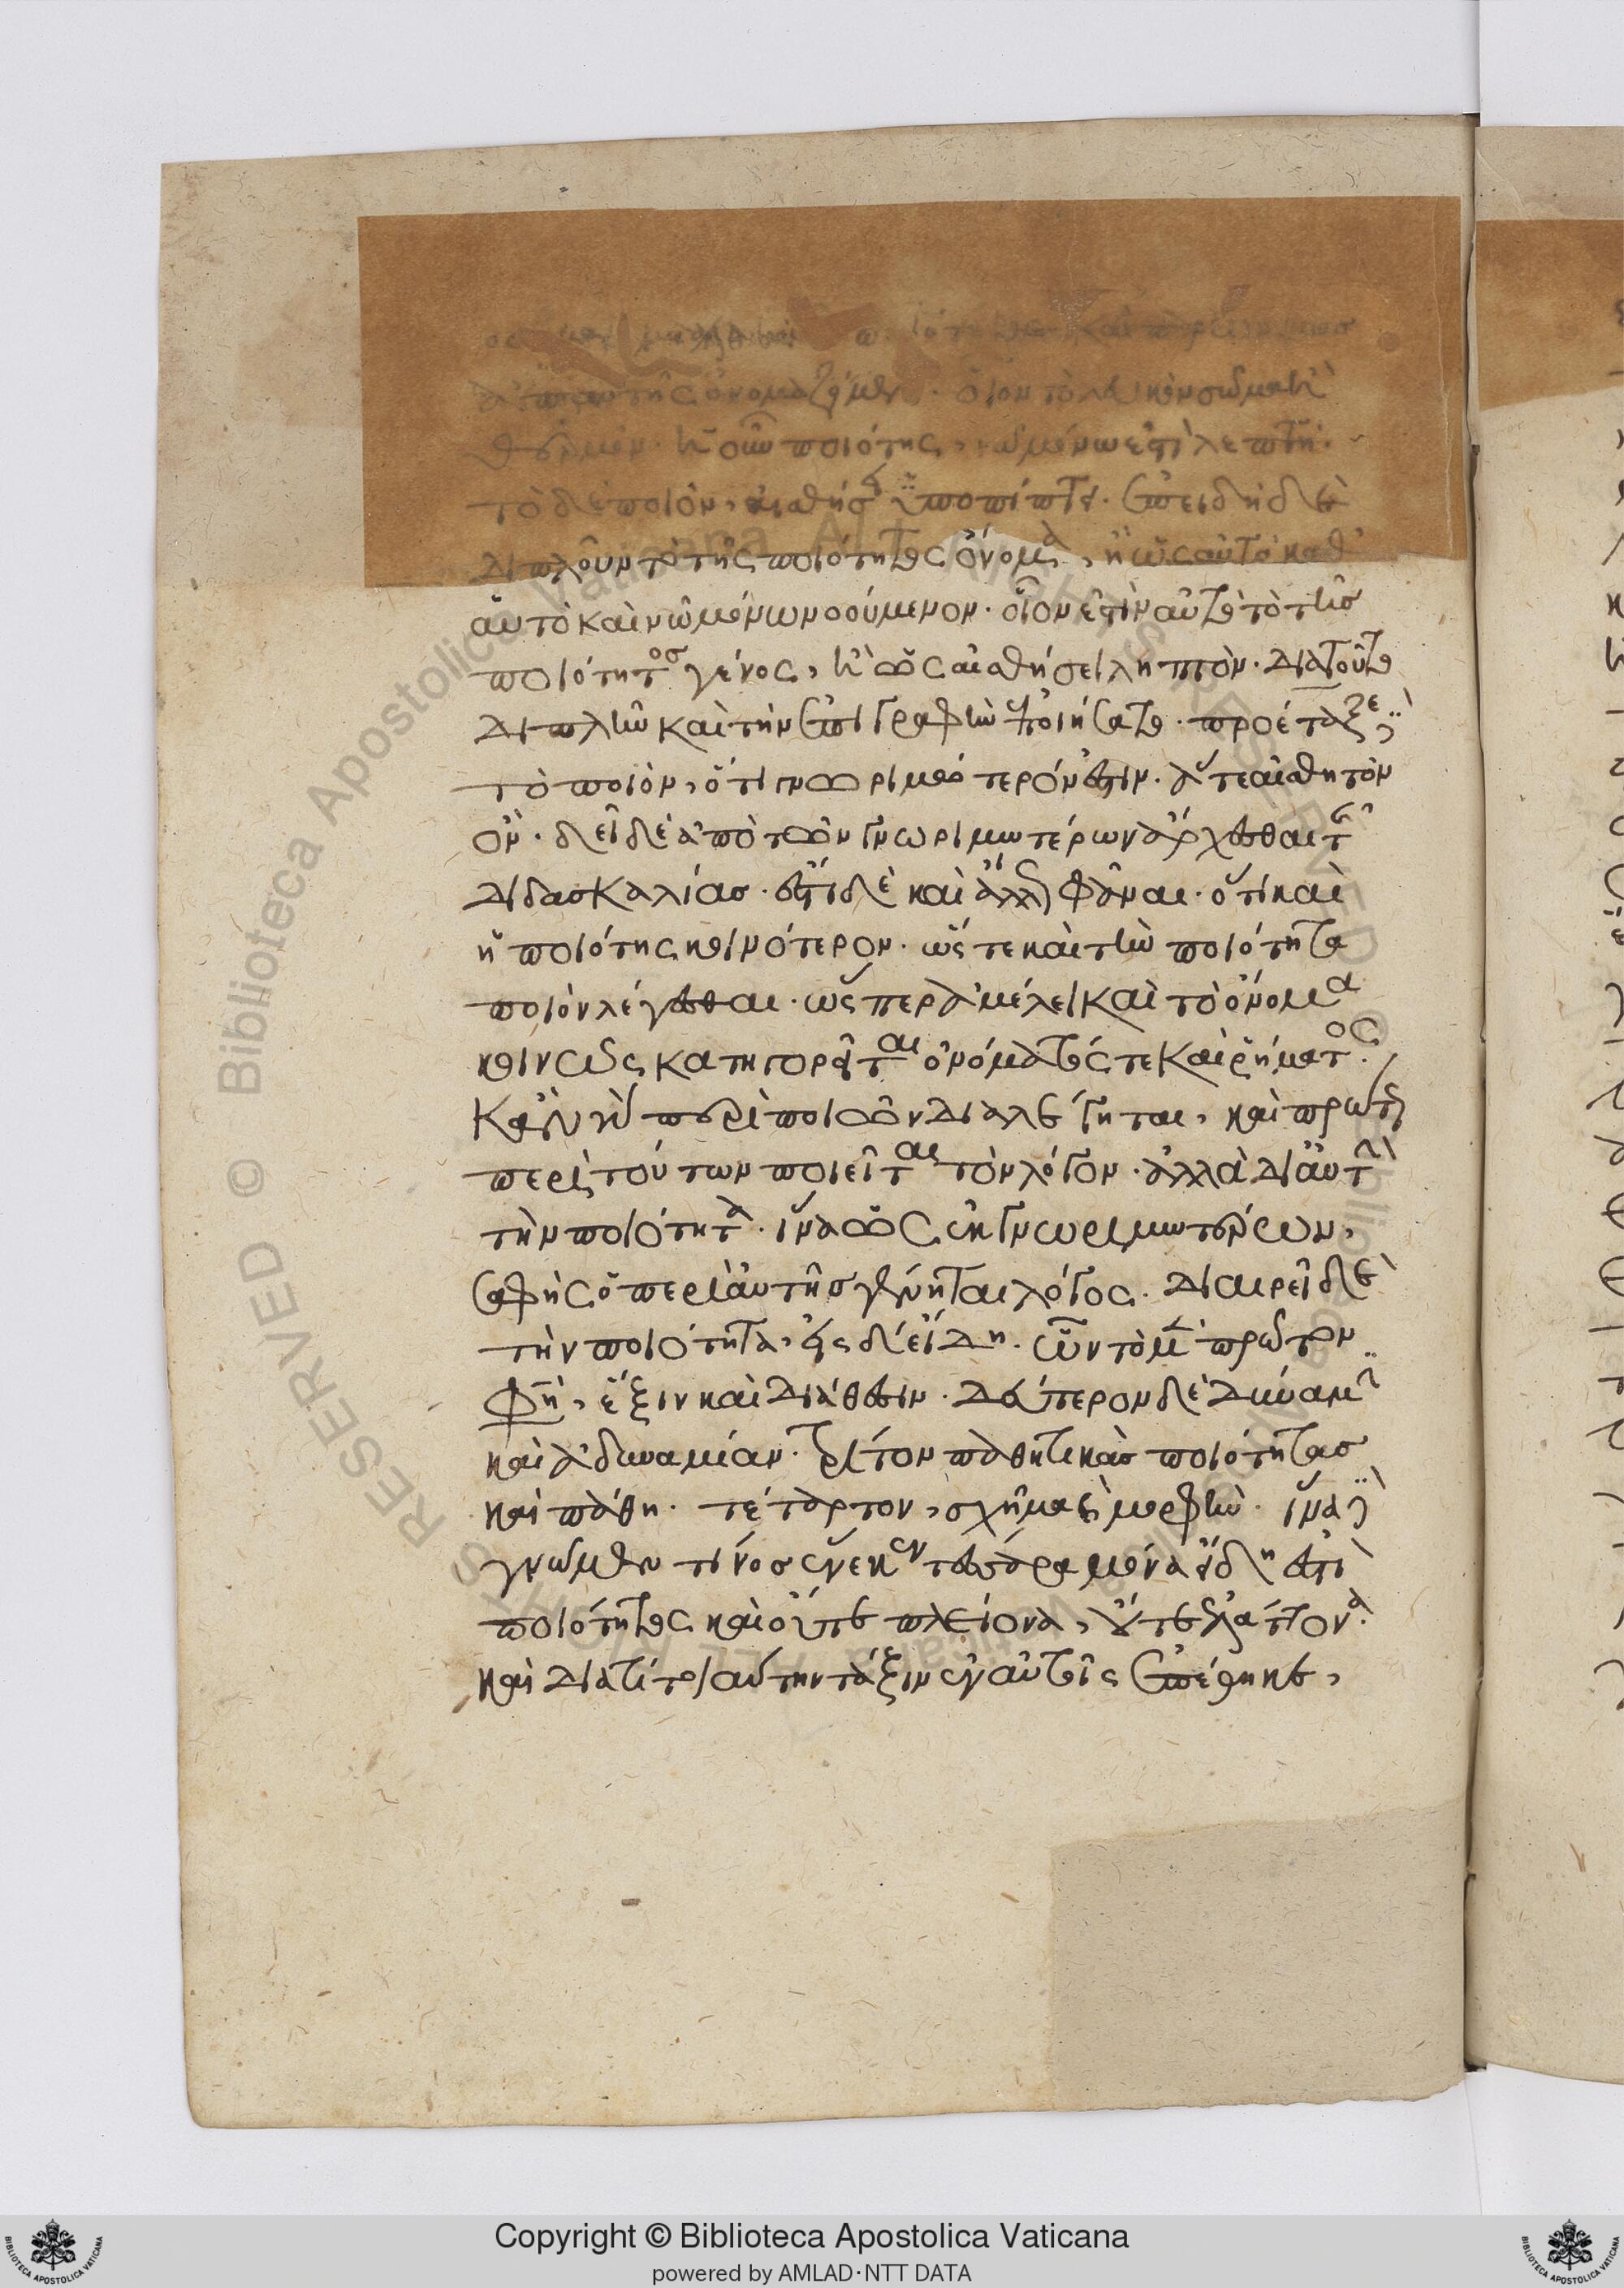 ἀπ' αὐτῆς ὀνομαζόμεν. οἷον τὸ λευκὸν σῶμα ἢ
θερμόν. ἡ οὖν ποιότης, νῷ μόνῳ ἐστὶ ληπτή.
τὸ δὲ ποιὸν, αἰσθήσει ὑποπίπτει. ἐπειδὴ δὲ
διπλοῦν τὸ τῆς ποιότητος ὄνομα, ἢ ὡς αὐτὸ καθ'
αὑτὸ καὶ νῷ μόνῳ νοούμενον. οἷόν ἐστιν αὐτὸ τὸ τῆς
ποιότητος γένος, ἢ ὡς αἰσθήσει ληπτόν. διὰ τοῦτο
διπλῆν καὶ τὴν ἐπιγραφὴν ἐποιήσατο. προέταξε δὲ
τὸ ποιὸν, ὅτι γνωριμώτερόν ἐστιν. ἅτε αἰσθητὸν
ὄν. δεῖ δὲ ἀπὸ τῶν γνωριμωτέρων ἄρχεσθαι τῆς
διδασκαλίας. ἔστι δὲ καὶ ἄλλως φάναι. ὅτι καὶ
ἡ ποιότης κοινότερον. ὥστε καὶ τὴν ποιότητα
ποιὸν λέγεσθαι. ὥσπερ ἀμέλει καὶ τὸ ὄνομα
κοινῶς κατηγορεῖται ὀνόματός τε καὶ ῥήματος.
κἂν νῦν περὶ ποιῶν διαλέγηται, καὶ πρώτως
περὶ τούτων ποιεῖται τὸν λόγον. ἀλλὰ δι' αὐτὴν
τὴν ποιότητα. ἵνα ὡς ἐκ γνωριμωτέρων,
σαφὴς ὁ περὶ αὐτῆς γένηται λόγος. διαιρεῖ δὲ
τὴν ποιότητα, εἰς δ' εἴδη. ὧν τὸ μὲν πρῶτον
φησὶ, ἕξιν καὶ διάθεσιν. δεύτερον δὲ δύναμιν
καὶ ἀδυναμίαν. τρίτον παθητικὰς ποιότητας
καὶ πάθη. τέταρτον, σχῆμα καὶ μορφήν. ἵνα δὲ
γνῶμεν τίνος ἕνεκεν τέσσαρα μόνα εἴδη ἐστὶ
ποιότητος καὶ οὔτε πλείονα, οὔτε ἐλάττονα.
καὶ διὰ τί τοιαύτην τάξιν ἐν αὐτοῖς ἐπέθηκε,
Copyright © Biblioteca Apostolica Vaticana
powered by AMLAD·NTT DATA